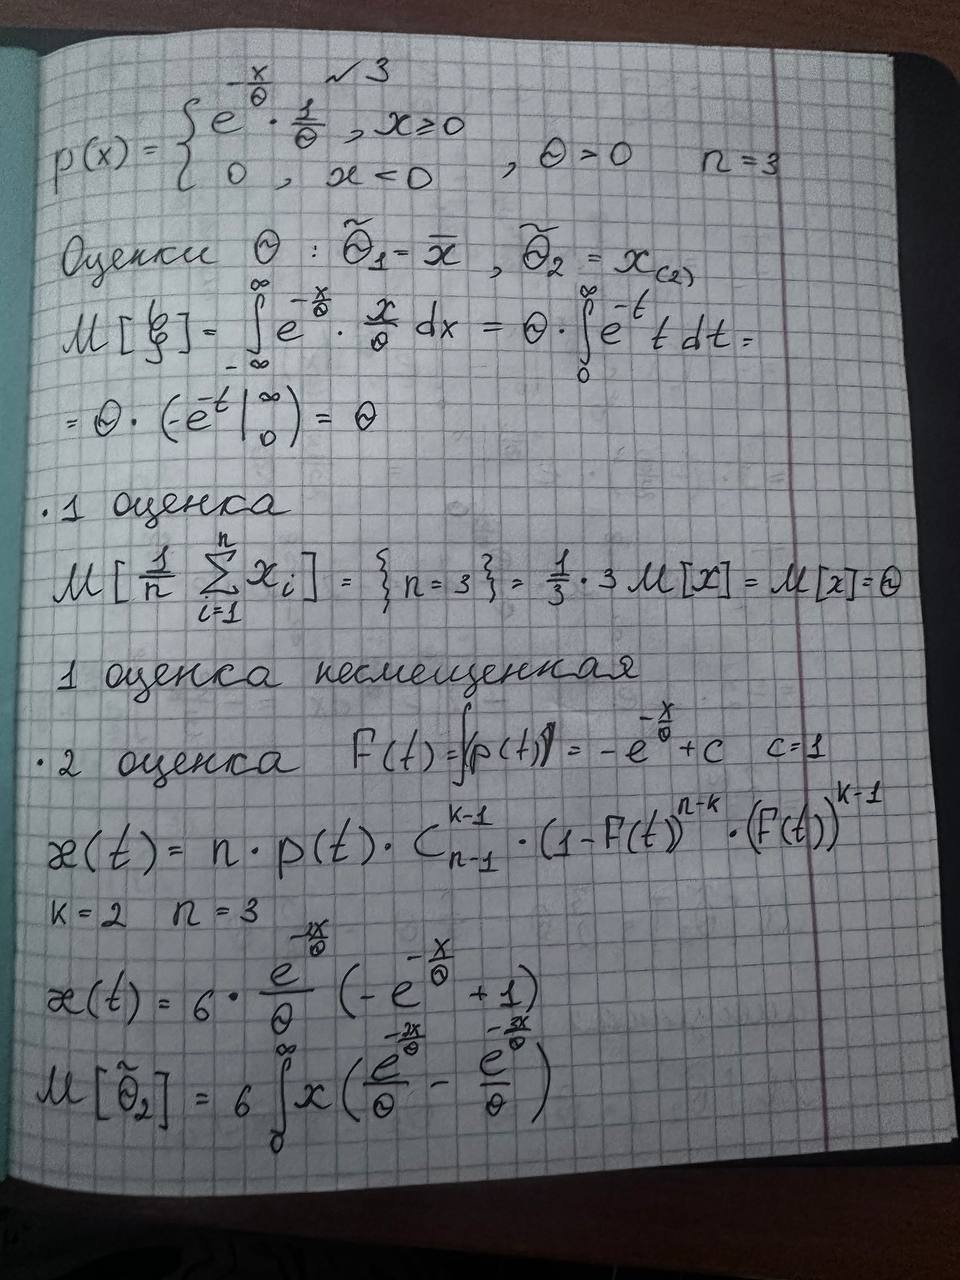 №3
p(x) = { e^{-x/θ} · 1/θ , x ≥ 0
0 , x < 0 , θ > 0 n = 3
Оценки θ : θ̃₁ = x̄ , θ̃₂ = x₍₂₎
M[ξ] = ∫_{-∞}^{∞} e^{-x/θ} · x/θ dx = θ · ∫_0^∞ e^{-t} t dt =
= θ · (-e^{-t} |_0^∞) = θ
· 1 оценка
M[1/n ∑_{i=1}^{n} x_i] = {n = 3} = 1/3 · 3 M[x] = M[x] = θ
1 оценка несмещенная
· 2 оценка F(t) = ∫p(t) = -e^{-x/θ} + c c = 1
æ(t) = n · p(t) · C_{n-1}^{k-1} · (1 - F(t))^{n-k} · (F(t))^{k-1}
k = 2 n = 3
æ(t) = 6 · e^{-2x/θ}/θ (-e^{-x/θ} + 1)
M[θ̃₂] = 6 ∫_0^∞ x (e^{-2x/θ}/θ - e^{-3x/θ}/θ)